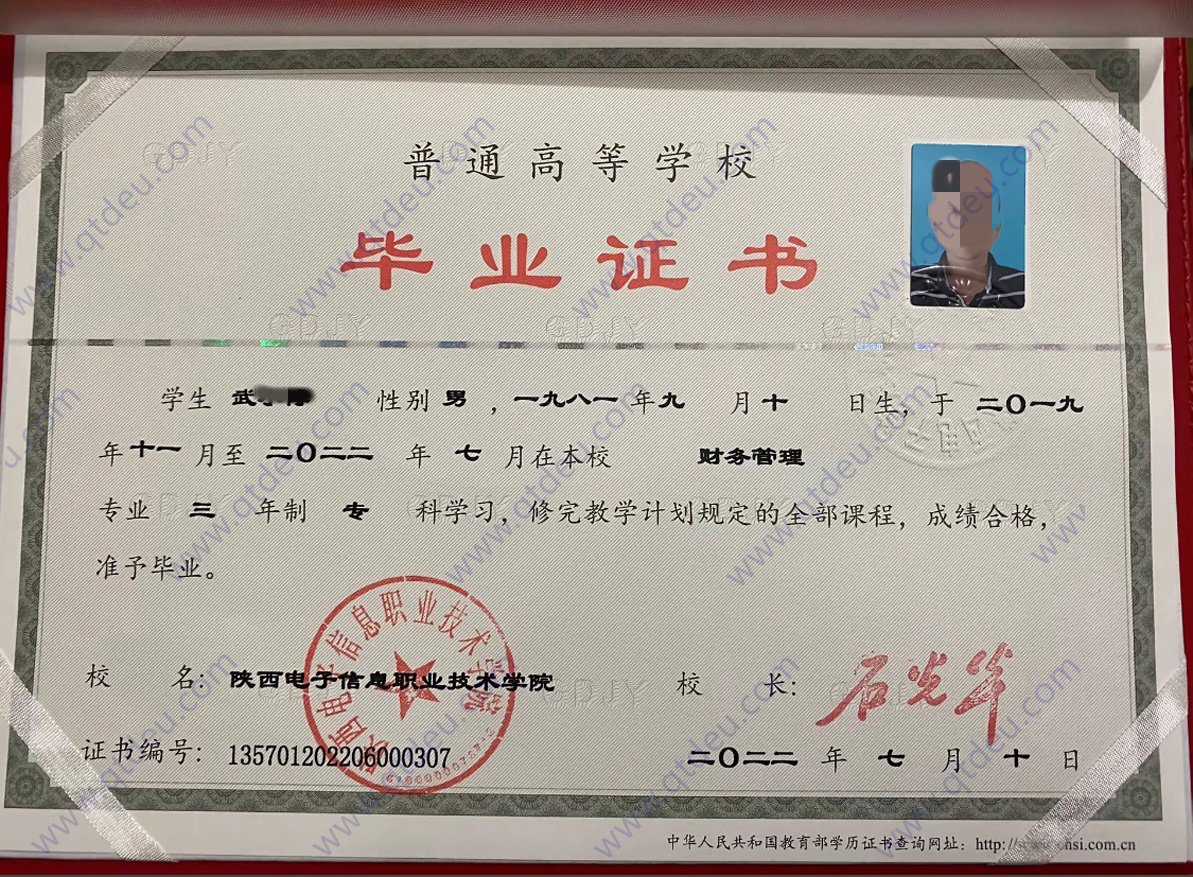 普通高等学校
毕业证书
学生 武 性别 男 ，一九八一 年 九 月 十 日生，于 二〇一九
年 十一 月至 二〇二二 年 七 月在本校 财务管理
专业 三 年制 专 科学习，修完教学计划规定的全部课程，成绩合格，
准予毕业。
陕西电子信息职业技术学院
校 名：陕西电子信息职业技术学院 校 长：
证书编号：135701202206000307 二〇二二 年 七 月 十 日
中华人民共和国教育部学历证书查询网址：http://www.chsi.com.cn
www.qtdeu.com